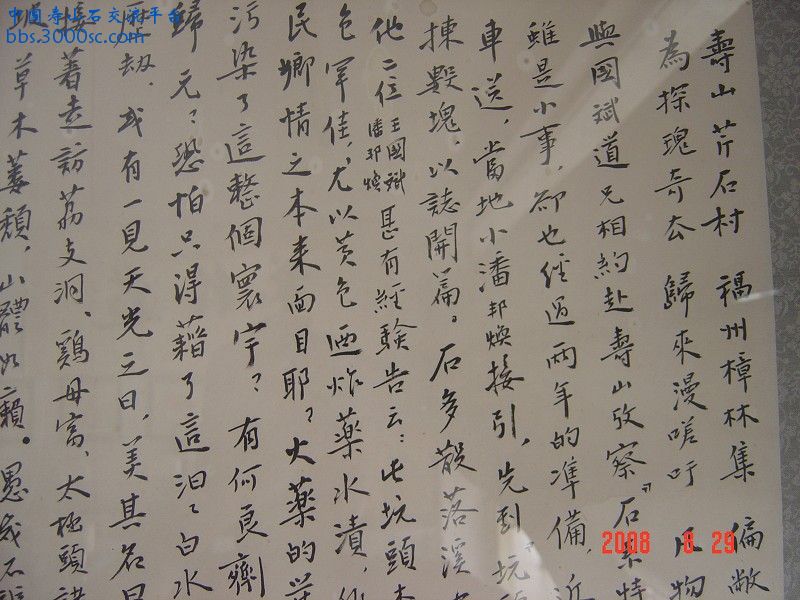 中国寿山石交流平台
bbs.3000sc.com
壽山芹石村 福州樟林集 偏敝
為探瑰奇去 歸來漫嗟吁 凡物
與國斌道兄相約赴壽山攷察“石累特
雖是小事，卻也經過兩年的準備，近
車送，當地小潘邦煥接引，先到“坑頭
揀數塊，以誌開篇。石多散落溪
他二位王國斌潘邦煥甚有經驗告云：此坑頭
色罕佳，尤以黃色迺炸藥水漬，
民鄉情之本来面目耶？火藥的
污染了這整個寰宇？有何良劑
歸元？恐怕只得藉了這汩汩白水
歷劫，或有一見天光之日，美其名曰
接着走訪荔支洞、鷄母窩、太極頭諸
坡草木萎頹，山體如癩。愚或不
2008 8 29